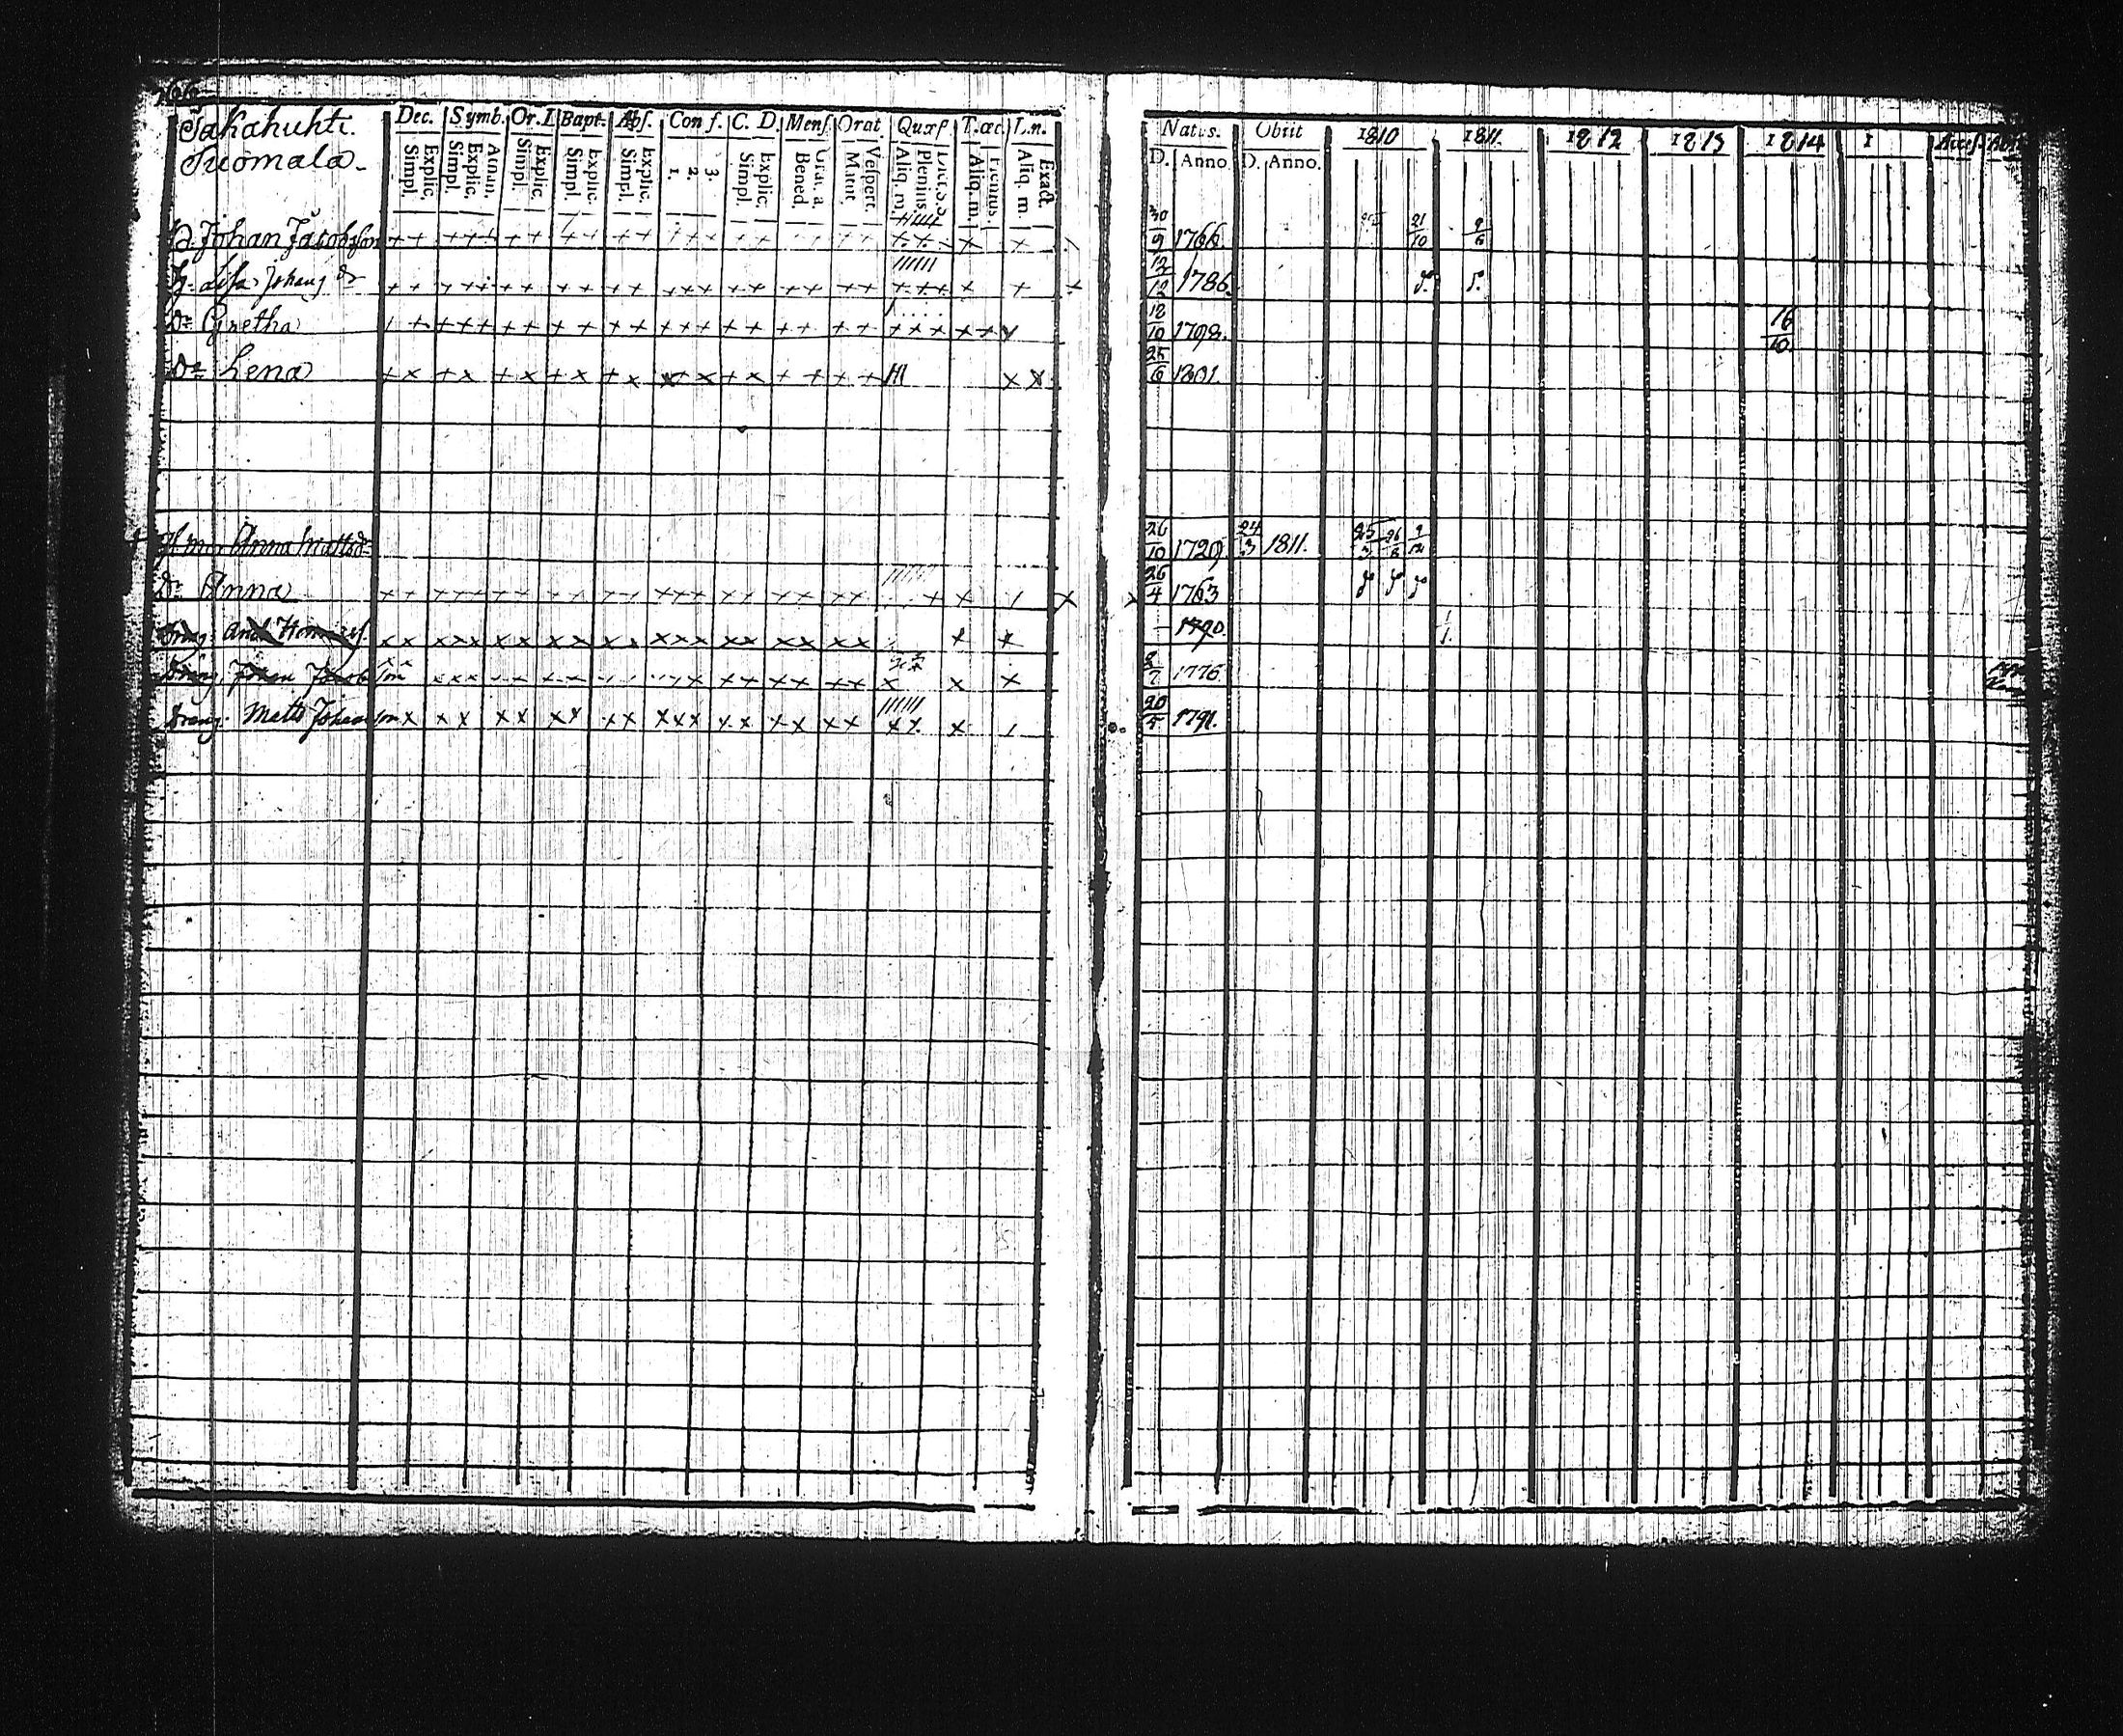 766
Takahuhti.
Tuomala.
Dec. Symb. Or. D. Bapt. Abs. Conf. C. D. Mens. Orat. Quæs. T. œc. L. n.
Simpl. Explic. Simpl. Explic. Athan. Simpl. Explic. Simpl. Explic. Simpl. Explic. 1. 2. 3. Simpl. Explic. Bened. Grat. a. Matut. Vespert. Aliq. m. Plenius. Dict. S. S. Aliq. m. Plenius. Aliq. m. Exact.
Natus. Obiit 1810 1811. 1812 1813 1814 1 Access. Abit.
D. Anno D. Anno.
Johan Jacobsson 30/9 1766. 21/10 9/6
H. Lisa Johans dr 12/12 1786. S. S.
Dr. Gretha 12/10 1798. 16/10
Dr. Lena 25/6 1801.
H mor Anna Matts dr 26/10 1729 24/3 1811. 25/3 26/8 9/12
Dr. Anna 26/4 1763
Dreng. And. 1790.
Dreng. Johan Jacobsson 2/7 1776.
Dreng. Matts Johansson 20/5 1791.